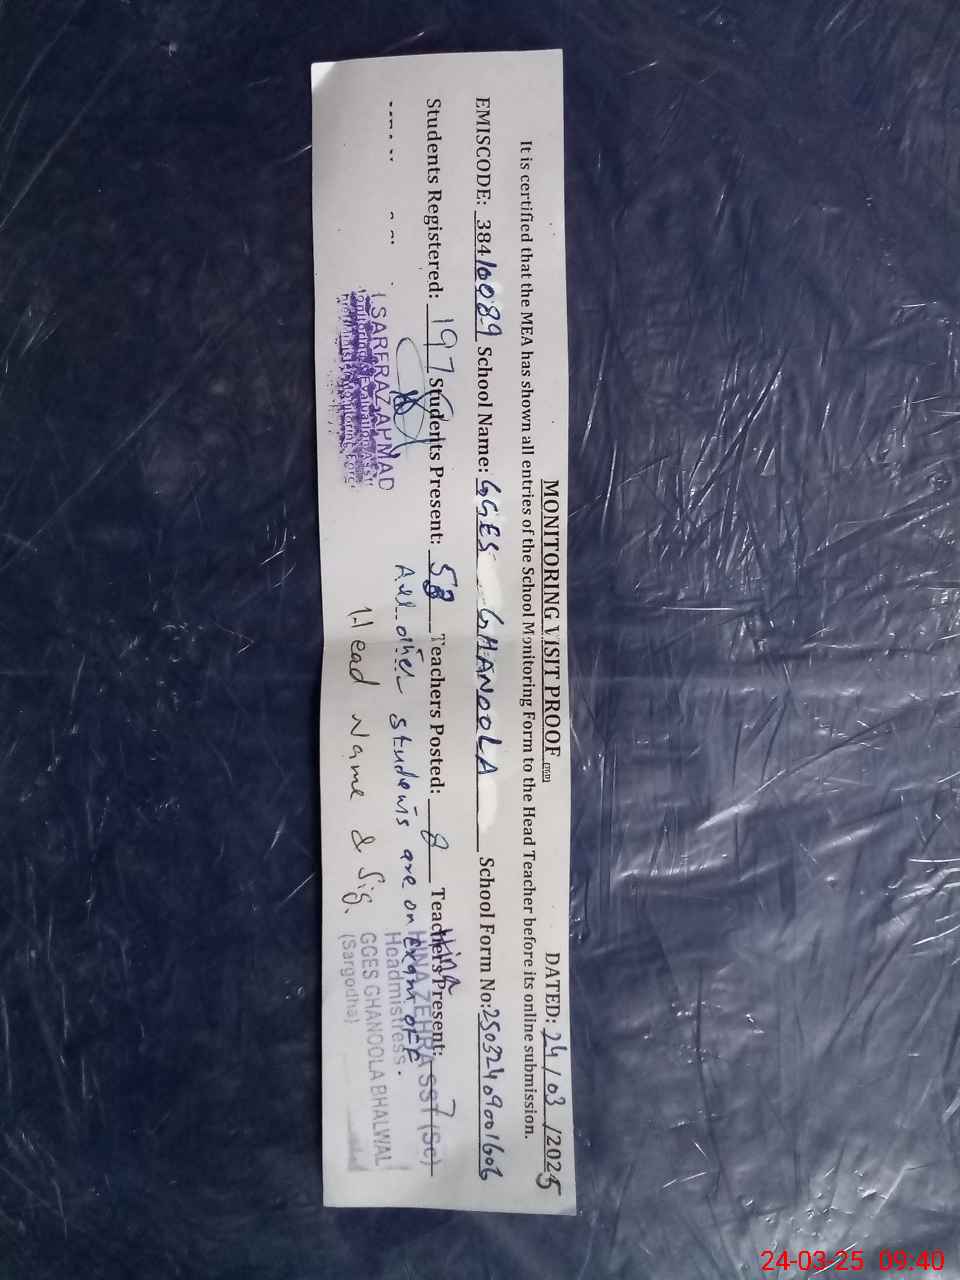 MONITORING VISIT PROOF
DATED: 24/03/2025
It is certified that the MEA has shown all entries of the School Monitoring Form to the Head Teacher before its online submission.
EMISCODE: 38410089 School Name: GGES GHANOOLA School Form No: 25032409001606
Students Registered: 197 Students Present: 58 Teachers Posted: 8 Teachers Present: 7
All other students are on exam off.
Hina
HINA ZEHRA SST (Sc)
Headmistress
GGES GHANOOLA BHALWAL
(Sargodha)
Head Name & Sig.
SARFRAZ AHMAD
Monitoring & Evaluation Asst:
24-03-25 09:40